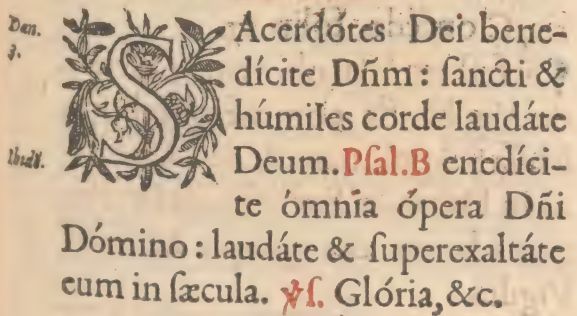 Dan.
3.
SAcerdótes Dei bene-
dícite Dñm : ſancti &
húmiles corde laudáte
Deum. Pſal. B enedíci-
Ibid.
te ómnia ópera Dñi
Dómino : laudáte & ſuperexaltáte
eum in ſæcula. ℣ſ. Glória, &c.